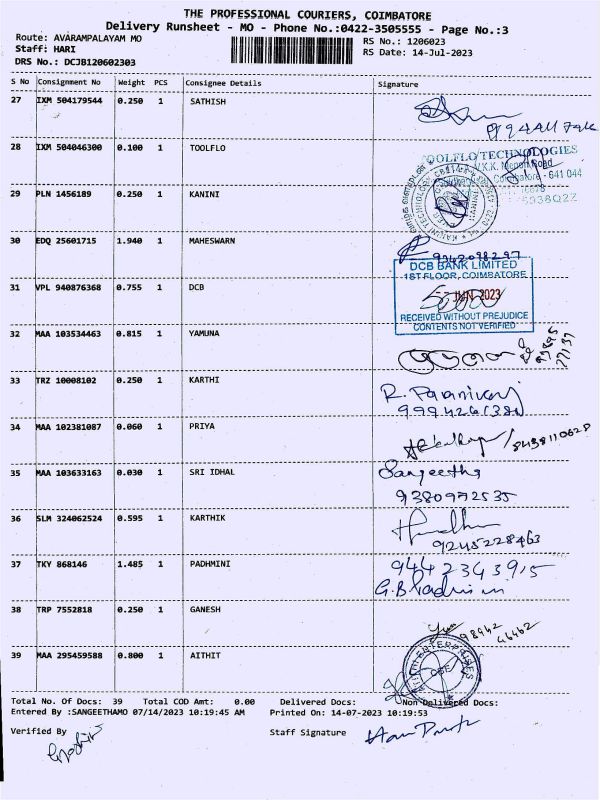 THE PROFESSIONAL COURIERS, COIMBATORE
Delivery Runsheet - MO - Phone No.:0422-3505555 - Page No.:3
Route: AVARAMPALAYAM MO
RS No.: 1206023
Staff: HARI
RS Date: 14-Jul-2023
DRS No.: DCJB120602303
S No Consignment No Weight PCS Consignee Details Signature
27 IXM 504179544 0.250 1 SATHISH
28 IXM 504046300 0.100 1 TOOLFLO
OOLFLO TECHNOLOGIES
V.K.K. Menon Road
Coimbatore - 641 044
29 PLN 1456189 0.250 1 KANINI
30 EDQ 25601715 1.940 1 MAHESWARN
9342098297
31 VPL 940876368 0.755 1 DCB
DCB BANK LIMITED
1ST FLOOR, COIMBATORE
JUN 2023
RECEIVED WITHOUT PREJUDICE
CONTENTS NOT VERIFIED
32 MAA 103534463 0.815 1 YAMUNA
33 TRZ 10008102 0.250 1 KARTHI
34 MAA 102381087 0.060 1 PRIYA
35 MAA 103633163 0.030 1 SRI IDHAL
Sangeetha
9380972535
36 SLM 324062524 0.595 1 KARTHIK
9245228463
37 TKY 868146 1.485 1 PADHMINI
9442343915
38 TRP 7552818 0.250 1 GANESH
98942 46462
39 MAA 295459588 0.800 1 AITHIT
ENTERPRISES
CBE
Total No. Of Docs: 39 Total COD Amt: 0.00 Delivered Docs: Non Delivered Docs:
Entered By :SANGEETHAMO 07/14/2023 10:19:45 AM Printed On: 14-07-2023 10:19:53
Verified By Staff Signature